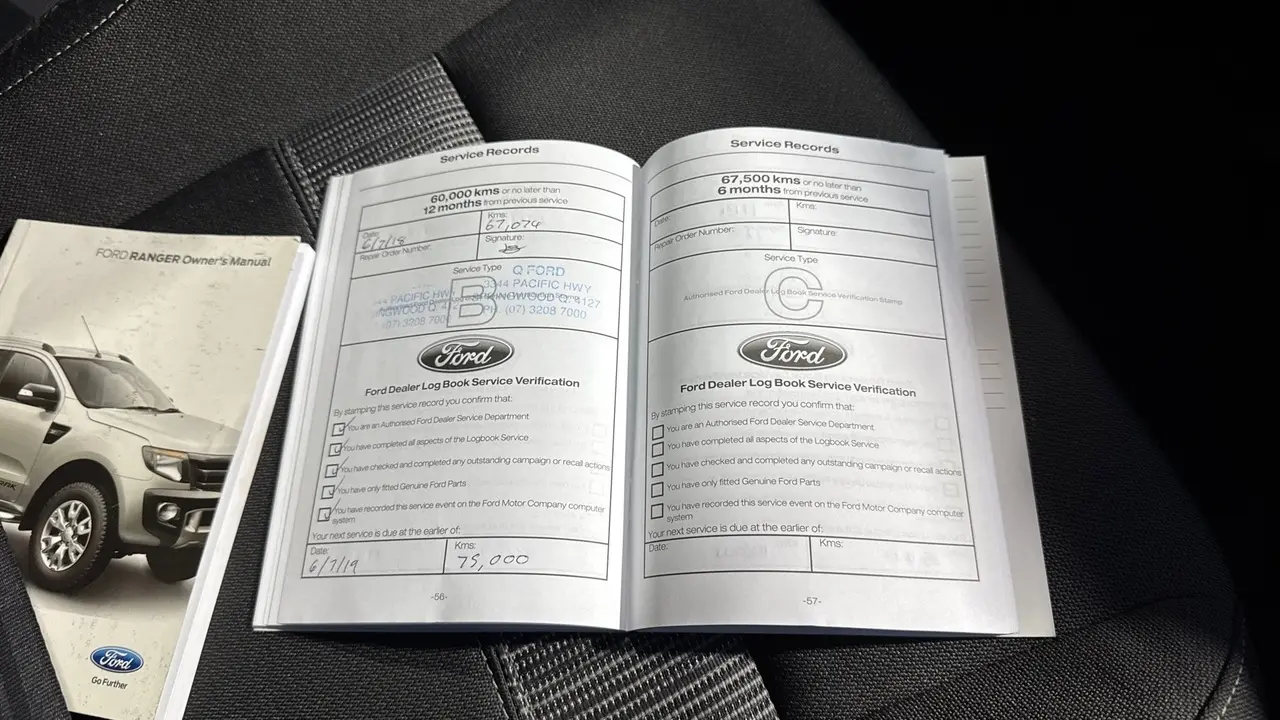 FORD RANGER Owner's Manual
Ford
Go Further
Service Records
60,000 kms or no later than
12 months from previous service
Date:
6/7/18
Kms:
67,074
Repair Order Number:
Signature:
Service Type
B
Q FORD
3344 PACIFIC HWY
PACIFIC HWY
SPRINGWOOD Q. 4127
NGWOOD Q. 4
PH. (07) 3208 7000
(07) 3208 7000
Ford
Ford Dealer Log Book Service Verification
By stamping this service record you confirm that:
You are an Authorised Ford Dealer Service Department
You have completed all aspects of the Logbook Service
You have checked and completed any outstanding campaign or recall actions
You have only fitted Genuine Ford Parts
You have recorded this service event on the Ford Motor Company computer
system
Your next service is due at the earlier of:
Date:
6/7/19
Kms:
75,000
-56-
Service Records
67,500 kms or no later than
6 months from previous service
Date:
Kms:
Repair Order Number:
Signature:
Service Type
C
Authorised Ford Dealer Log Book Service Verification Stamp
Ford
Ford Dealer Log Book Service Verification
By stamping this service record you confirm that:
You are an Authorised Ford Dealer Service Department
You have completed all aspects of the Logbook Service
You have checked and completed any outstanding campaign or recall actions
You have only fitted Genuine Ford Parts
You have recorded this service event on the Ford Motor Company computer
system
Your next service is due at the earlier of:
Date:
Kms:
-57-